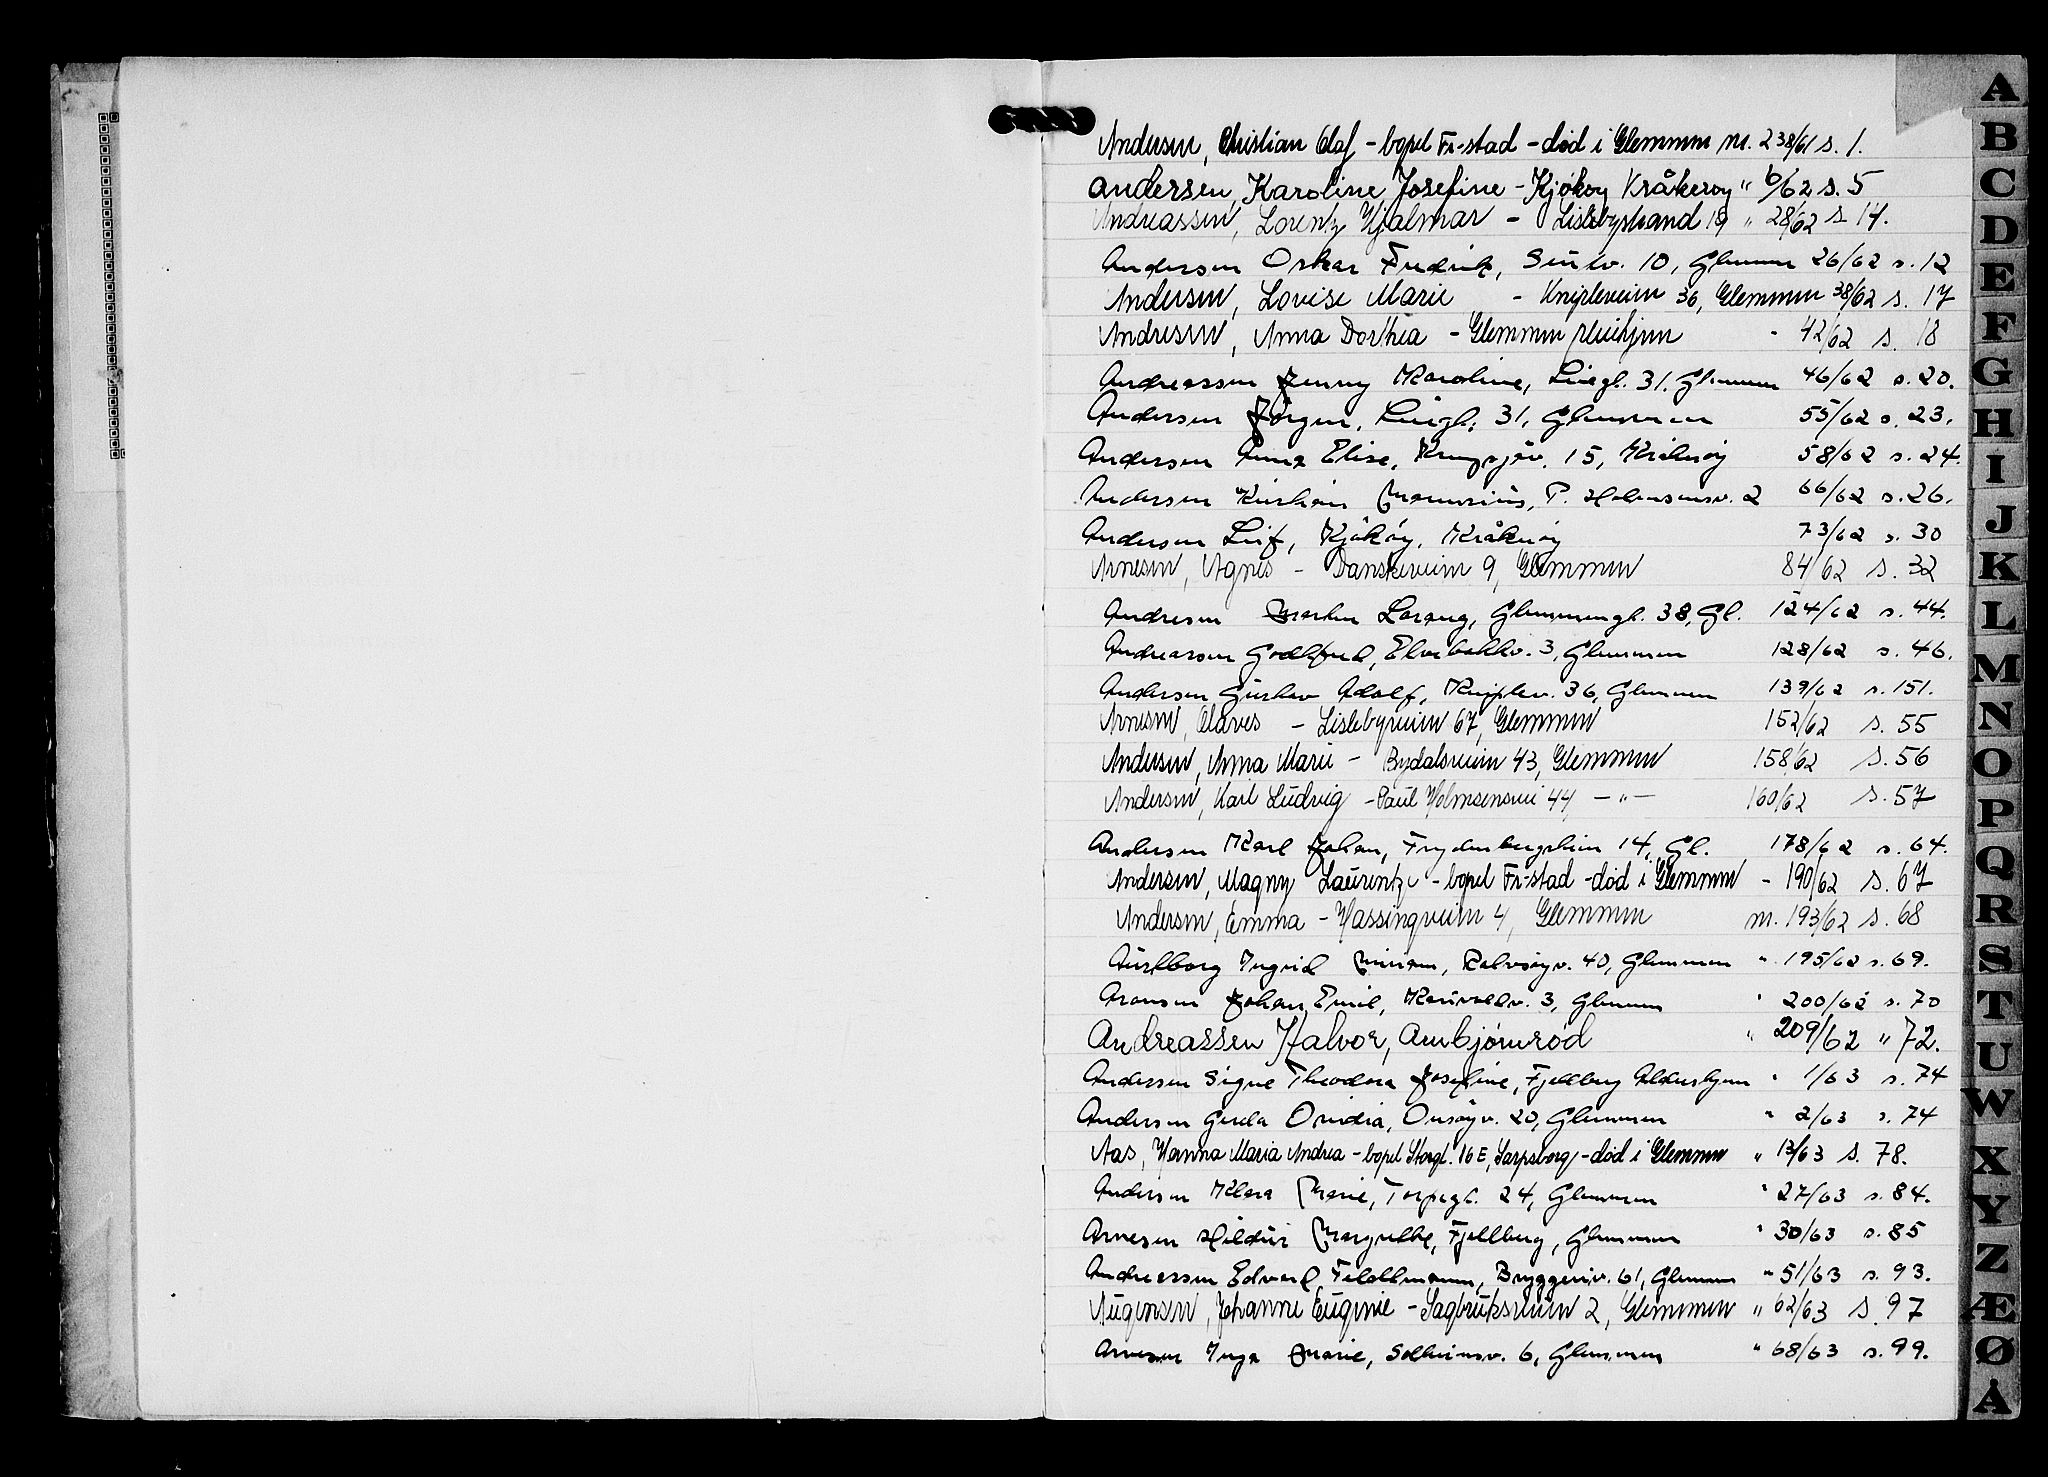 Andersen, Christian Olaf - bopel Fr-stad - død i Glemmen nr. 238/61 s. 1.
Andersen, Karoline Josefine - Kjøkøy Kråkerøy " 6/62 s. 5
Andreassen, Lorentz Hjalmar - Lislebystrand 19 " 28/62 s 14.
Andersen Oskar Fredrik, 10, Glemmen 26/62 s. 12
Andersen, Lovise Marie - Knipleveien 36, Glemmen 38/62 s. 17
Andresen, Anna Dorthea - Glemmen pleiehjem - 42/62 s. 18
Andreassen Jenny Karoline, Liegt. 31. Glemmen 46/62 s. 20.
Andersen Jörgen, Liegt. 31, Glemmen 55/62 s. 23.
Andersen Anna Elise, 15, Kråkerøy 58/62 s. 24.
Andersen Kristian P. Holmsensv. 2 66/62 s. 26.
Andersen Leif, Kjøkøy, Kråkerøy 73/62 s. 30
Arnesen, Agnes - Danskeveien 9, Glemmen 84/62 s. 32
Andresen Martin Lorang, Glemmengt. 38, Gl. 124/62 s. 44.
Andreassen Godtfred, Elvebakkv. 3, Glemmen 128/62 s. 46.
Andersen Gustav Adolf, Kniplev. 36, Glemmen 139/62 s. 151.
Arnesen, Olaves - Lislebyveien 67, Glemmen 152/62 s. 55
Andersen, Anna Marie - Bydalsveien 43, Glemmen 158/62 s. 56
Andersen, Karl Ludvig - Paul Holmsensvei 44, - " - 160/62 s. 57
Andersen Karl Johan, Frydenbergstien 14, Gl. 178/62 s. 64.
Andersen, Magny Laurentze - bopel Fr-stad - død i Glemmen - 190/62 s. 67
Andersen, Emma - Hassingveien 4, Glemmen nr. 193/62 s. 68
Aurtborg Ingrid Miriam, Rolvsøyv. 40, Glemmen " 195/62 s. 69.
Aronsen Johan Emil, 3, Glemmen " 200/62 s. 70
Andreassen Halvor, Ambjørnrød " 209/62 " 72.
Andersen Signe Theodora Josefine, Fjellberg Aldershjem " 1/63 s. 74
Andersen Gerda Ovidia, Onsøyv. 20, Glemmen " 2/63 s. 74
Aas, Hanna Maria Andrea - bopel Storgt. 16 E, Sarpsborg - død i Glemmen " 13/63 s. 78.
Andersen Klara Marie, Torpegt. 24, Glemmen " 27/63 s. 84.
Arnesen Hildur Margrethe, Fjellberg, Glemmen " 30/63 s. 85
Andreassen Edvard Feldtmann, Bryggeriv. 61, Glemmen " 51/63 s. 93.
Augensen, Johanne Eugenie - Sagbruksveien 2, Glemmen " 62/63 s. 97
Arnesen Inga Marie, Solheimsv. 6, Glemmen " 68/63 s. 99.
A
B
C
D
E
F
G
H
I
J
K
L
M
N
O
P
Q
R
S
T
U
W
X
Y
Z
Æ
Ø
Å